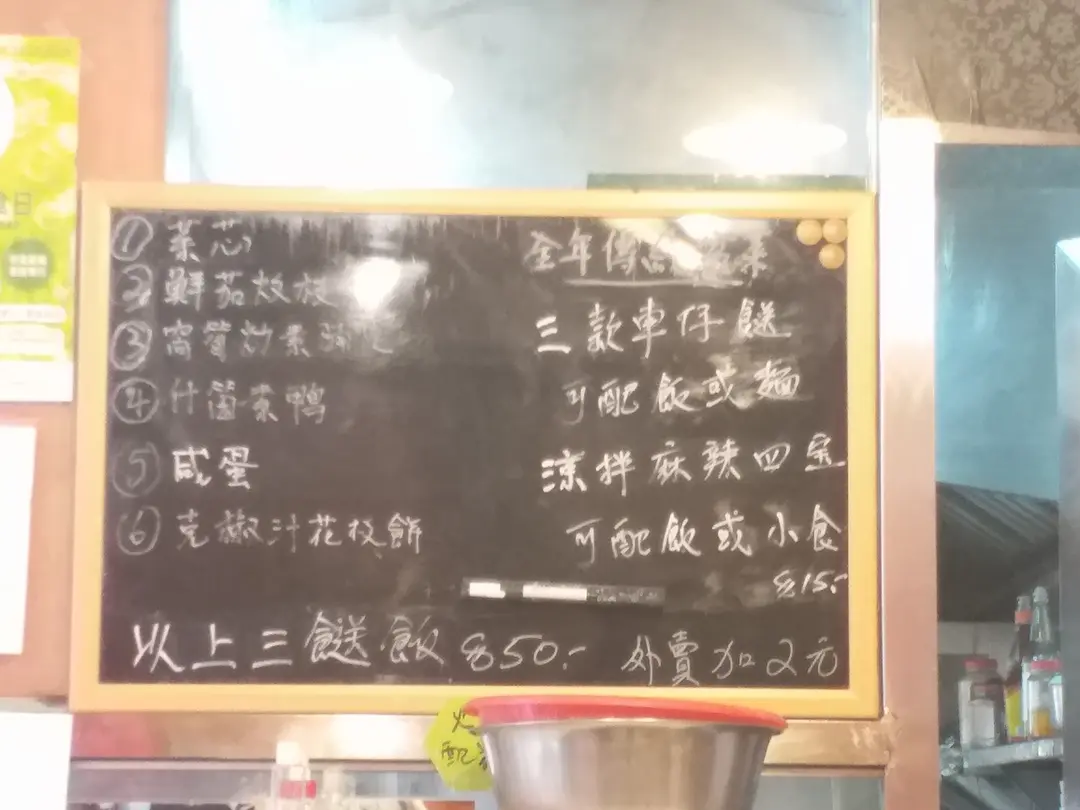 ① 菜芯
② 鮮茄炆枝
③ 窩筍炒素
④ 什菌素鴨
⑤ 咸蛋
⑥ 克椒汁花枝餅
全年傳 菜
三款車仔餸
可配飯或麵
涼拌麻辣四宝
可配飯或小食
$15.-
以上三餸飯 $50.- 外賣加2元
配
日